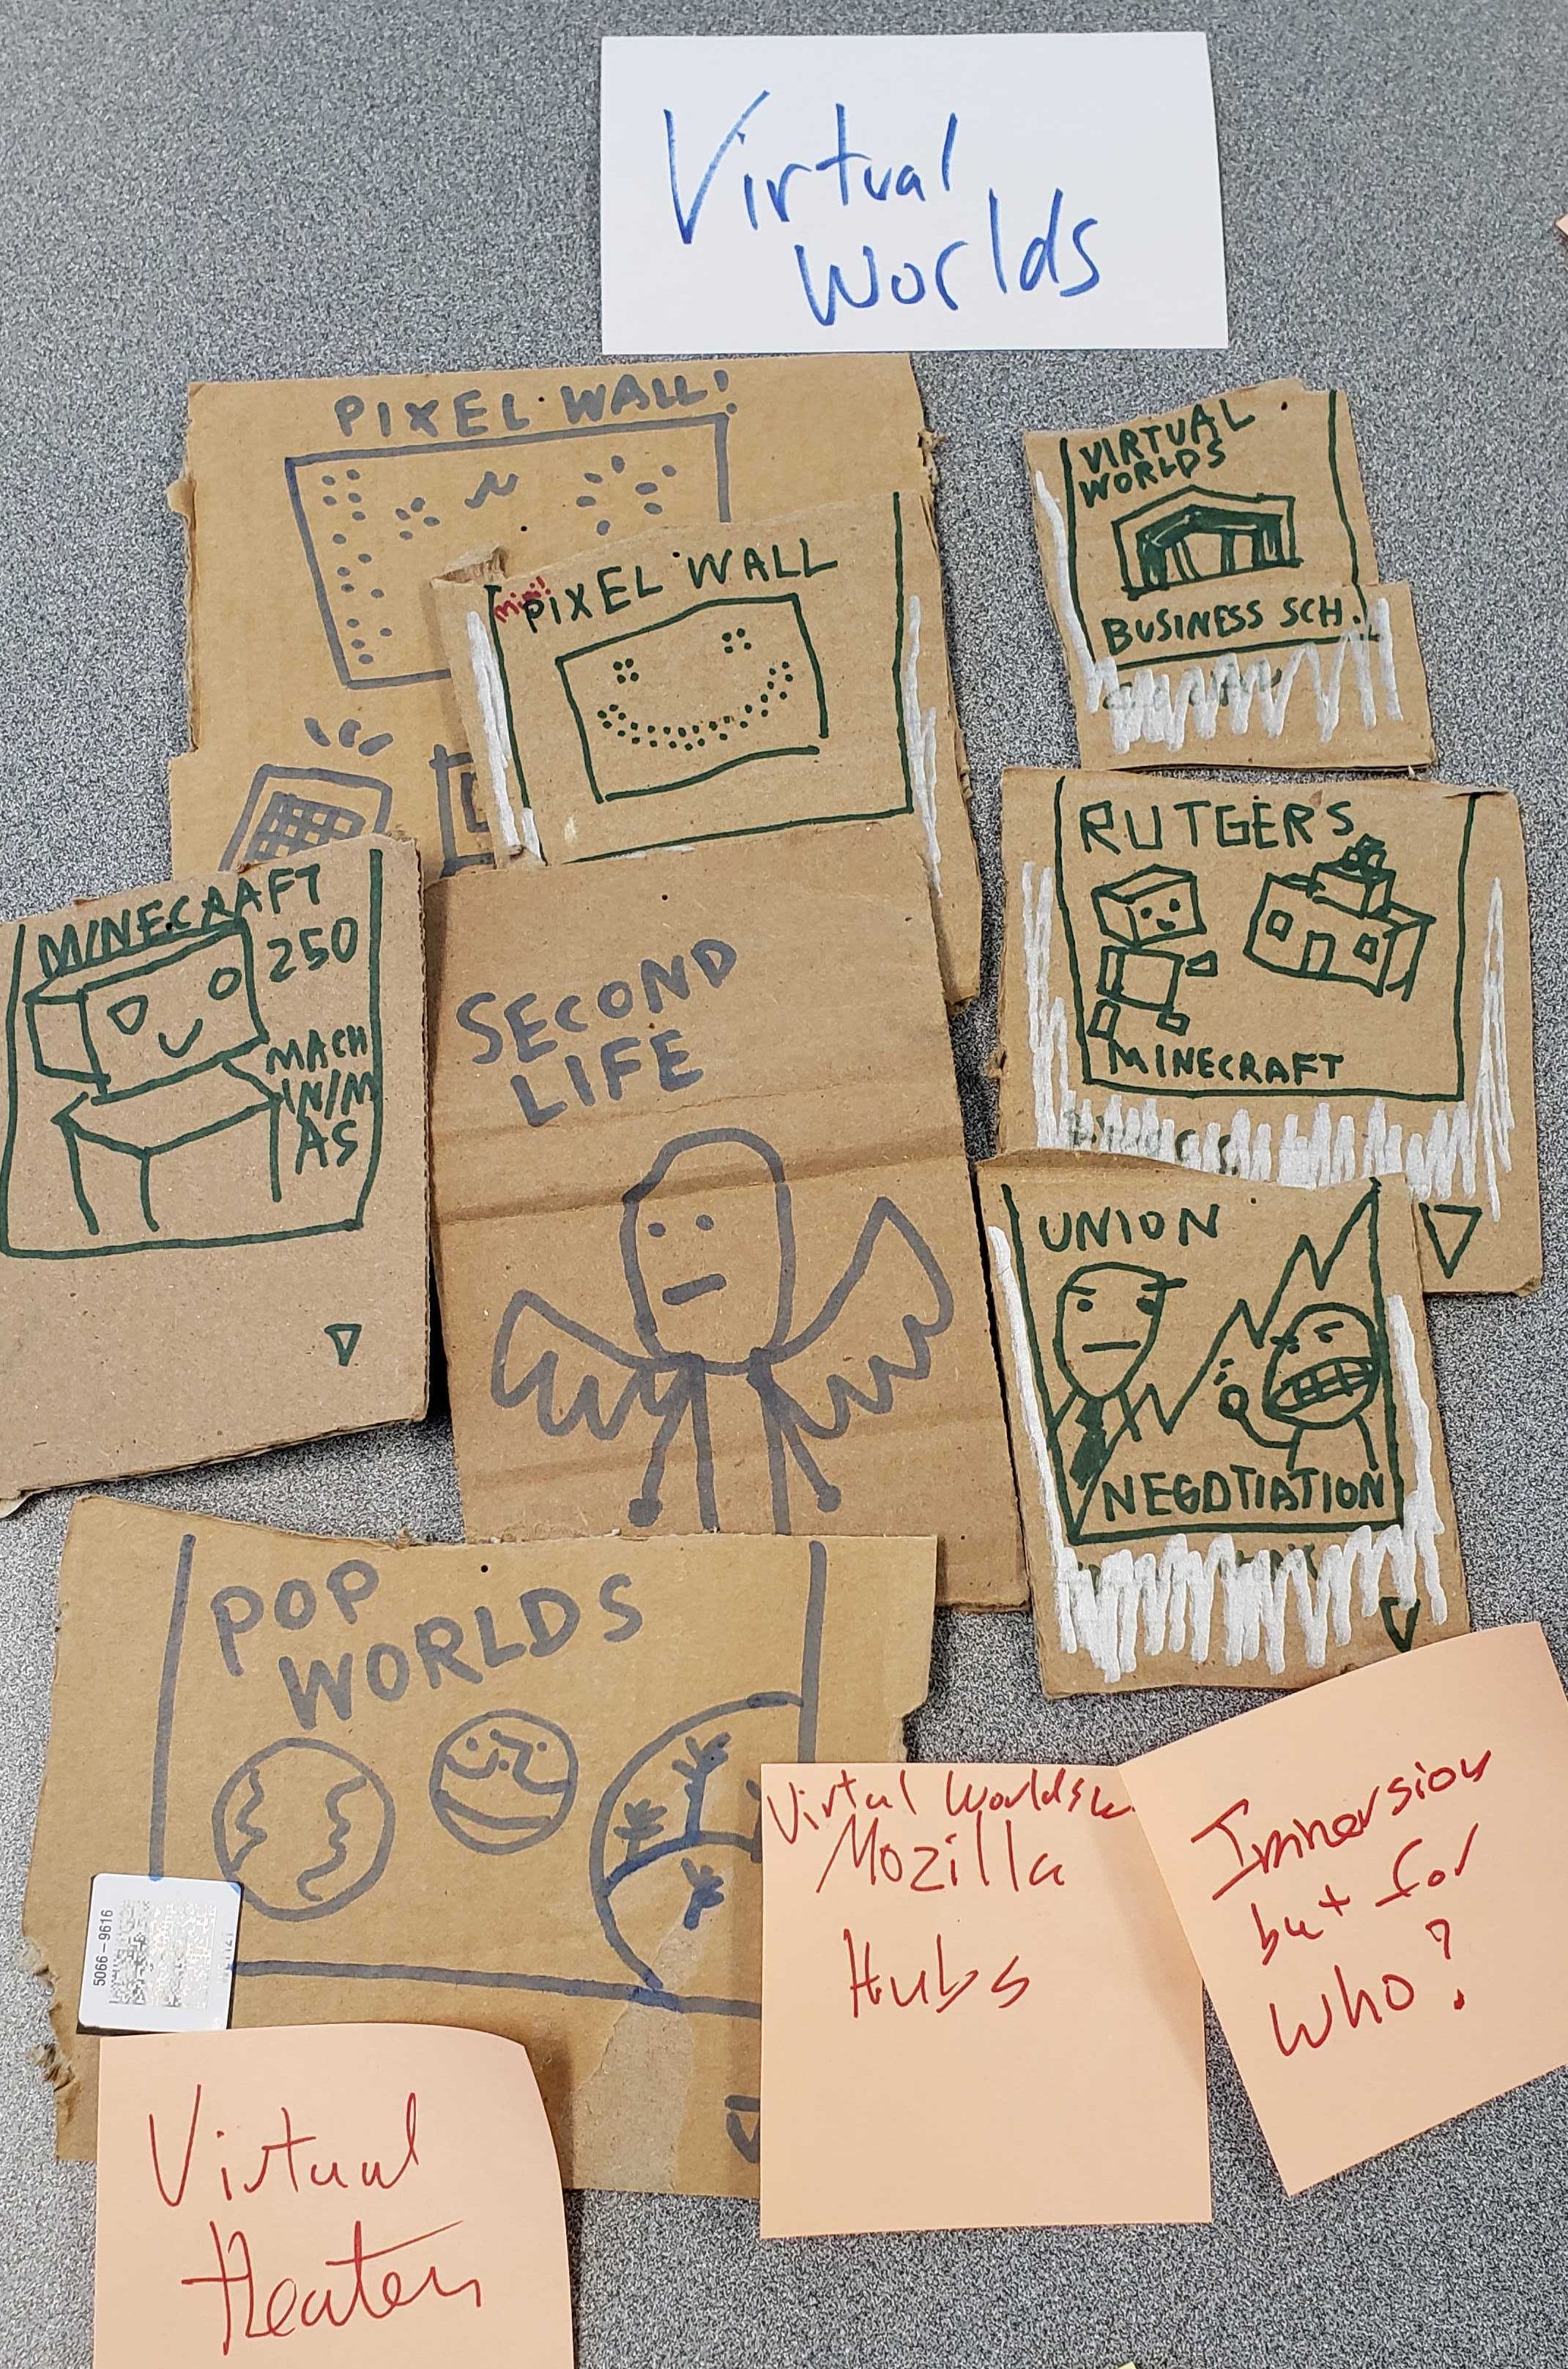 Virtual
Worlds
PIXEL WALL!
mini!
PIXEL WALL
VIRTUAL
WORLDS
BUSINESS SCH.
MINECRAFT
250
MACH
INIM
AS
SECOND
LIFE
RUTGERS
MINECRAFT
UNION
NEGOTIATION
POP
WORLDS
5066-9616
Virtual Worlds
Mozilla
Hubs
Immersion
but for
who?
Virtual
theaters